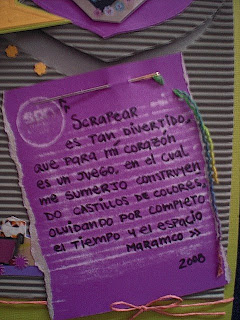 "SCRAPEAR
ES TAN DIVERTIDO,
QUE PARA MÍ CORAZÓN
ES UN JUEGO, EN EL CUAL
ME SUMERJO CONSTRUYEN
DO CASTILLOS DE COLORES,
OLVIDANDO POR COMPLETO
EL TIEMPO Y EL ESPACIO
MARAMCO »
2008